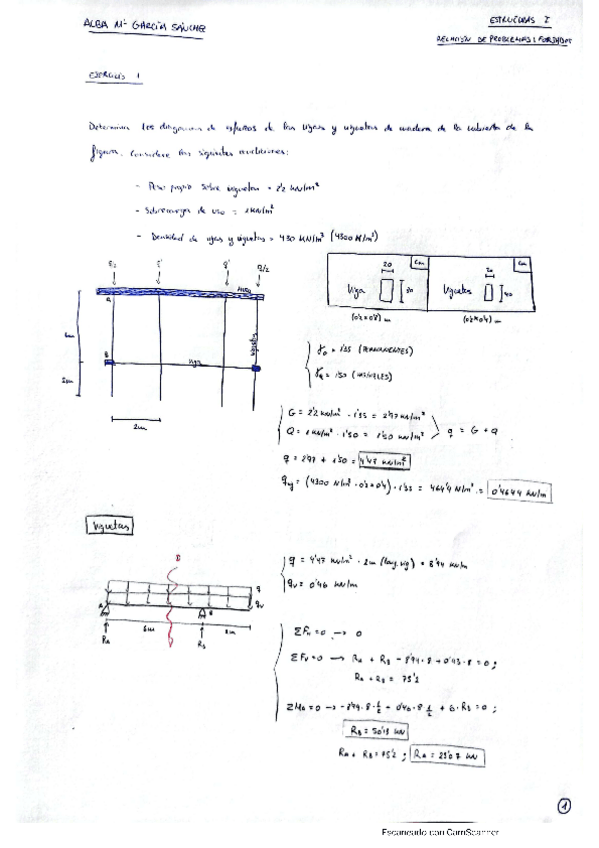 ALBA Mª GARCÍA SÁNCHEZ
ESTRUCTURAS I
RELACIÓN DE PROBLEMAS 1 FORJADOS
EJERCICIO 1
Determinar los diagramas de esfuerzos de las vigas y viguetas de madera de la cubierta de la
figura. Considere las siguientes acciones:
- Peso propio sobre viguetas = 2'2 kN/m²
- Sobrecarga de uso = 1 kN/m²
- Densidad de vigas y viguetas = 430 KN/m³ (4300 N/m³)
q/2 q q q/2
muro
A
B
viga
viguetas
6m
2m
2m
Viga
20
30
cm
Viguetas
20
40
cm
(0'2×0'4) m
γG = 1'35 (PERMANENTES)
γQ = 1'50 (VARIABLES)
G = 2'2 kN/m² · 1'35 = 2'97 kN/m²
Q = 1 kN/m² · 1'50 = 1'50 kN/m²
q = G + Q
q = 2'97 + 1'50 = 4'47 kN/m²
= (4300 N/m³ · 0'2 × 0'4) · 1'35 = 464'4 N/m = 0'4644 kN/m
Viguetas
D
q
qv
A
B
6m
2m
RA
RB
q = 4'47 kN/m² · 2m = 8'94 kN/m
qv = 0'46 kN/m
ΣFH = 0 → 0
ΣFV = 0 → RA + RB - 8'94 · 8 + 0'45 · 8 = 0;
RA + RB = 75'2
ΣMA = 0 → -8'94 · 8 · - 0'46 · 8 · + 6 · RB = 0;
RB = 50'13 kN
RA + RB = 75'2; RA = 25'07 kN
1
Escaneado con CamScanner